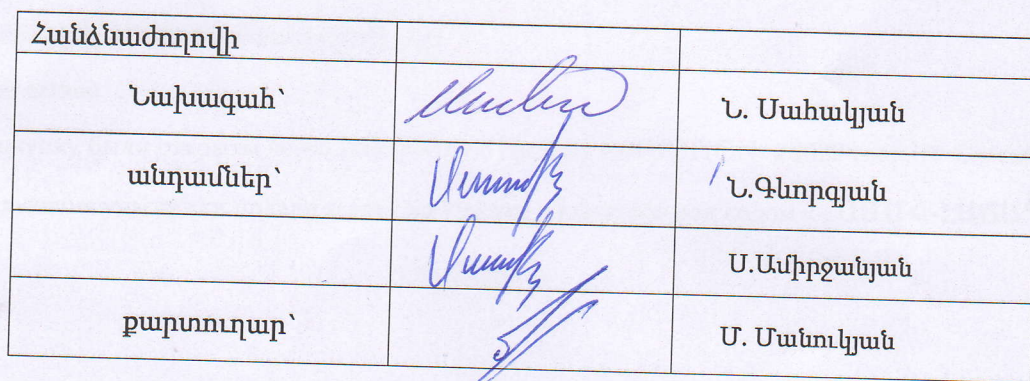 Հանձնաժողովի
Նախագահ՝ Ն. Սահակյան
անդամներ՝ Ն.Գևորգյան
Ս.Ամիրջանյան
քարտուղար՝ Մ. Մանուկյան